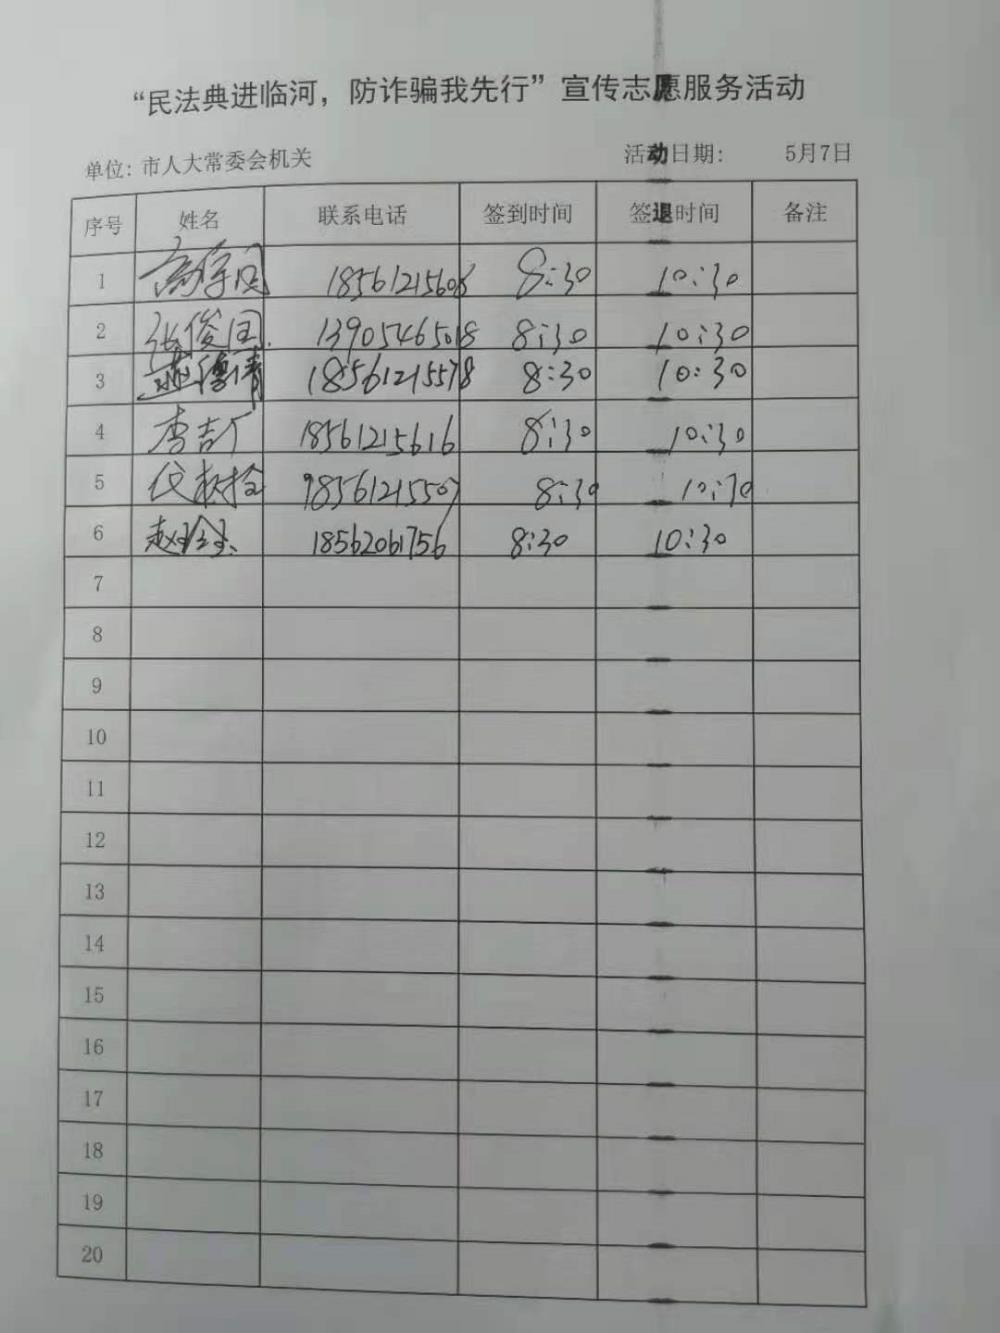 “民法典进临河，防诈骗我先行”宣传志愿服务活动
单位: 市人大常委会机关 活动日期: 5月7日
序号 姓名 联系电话 签到时间 签退时间 备注
1 18561215606 8:30 10:30
2 张俊国 13905465018 8:30 10:30
3 18561215578 8:30 10:30
4 李吉广 18561215616 8:30 10:30
5 18561215507 8:30 10:30
6 18562061756 8:30 10:30
7
8
9
10
11
12
13
14
15
16
17
18
19
20